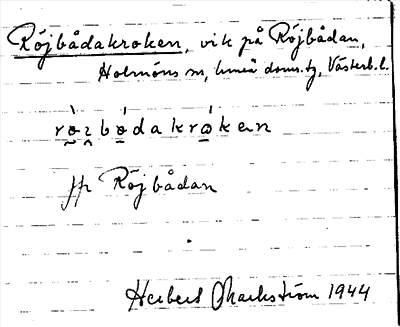 Röjbådakroken, vik på Röjbådan,
Holmöns sn, Umeå doms.tg, Västerb. l.
rò̰ʒ̭bó̱dakrò̱kan
jfr Röjbådan
Herbert Markström 1944